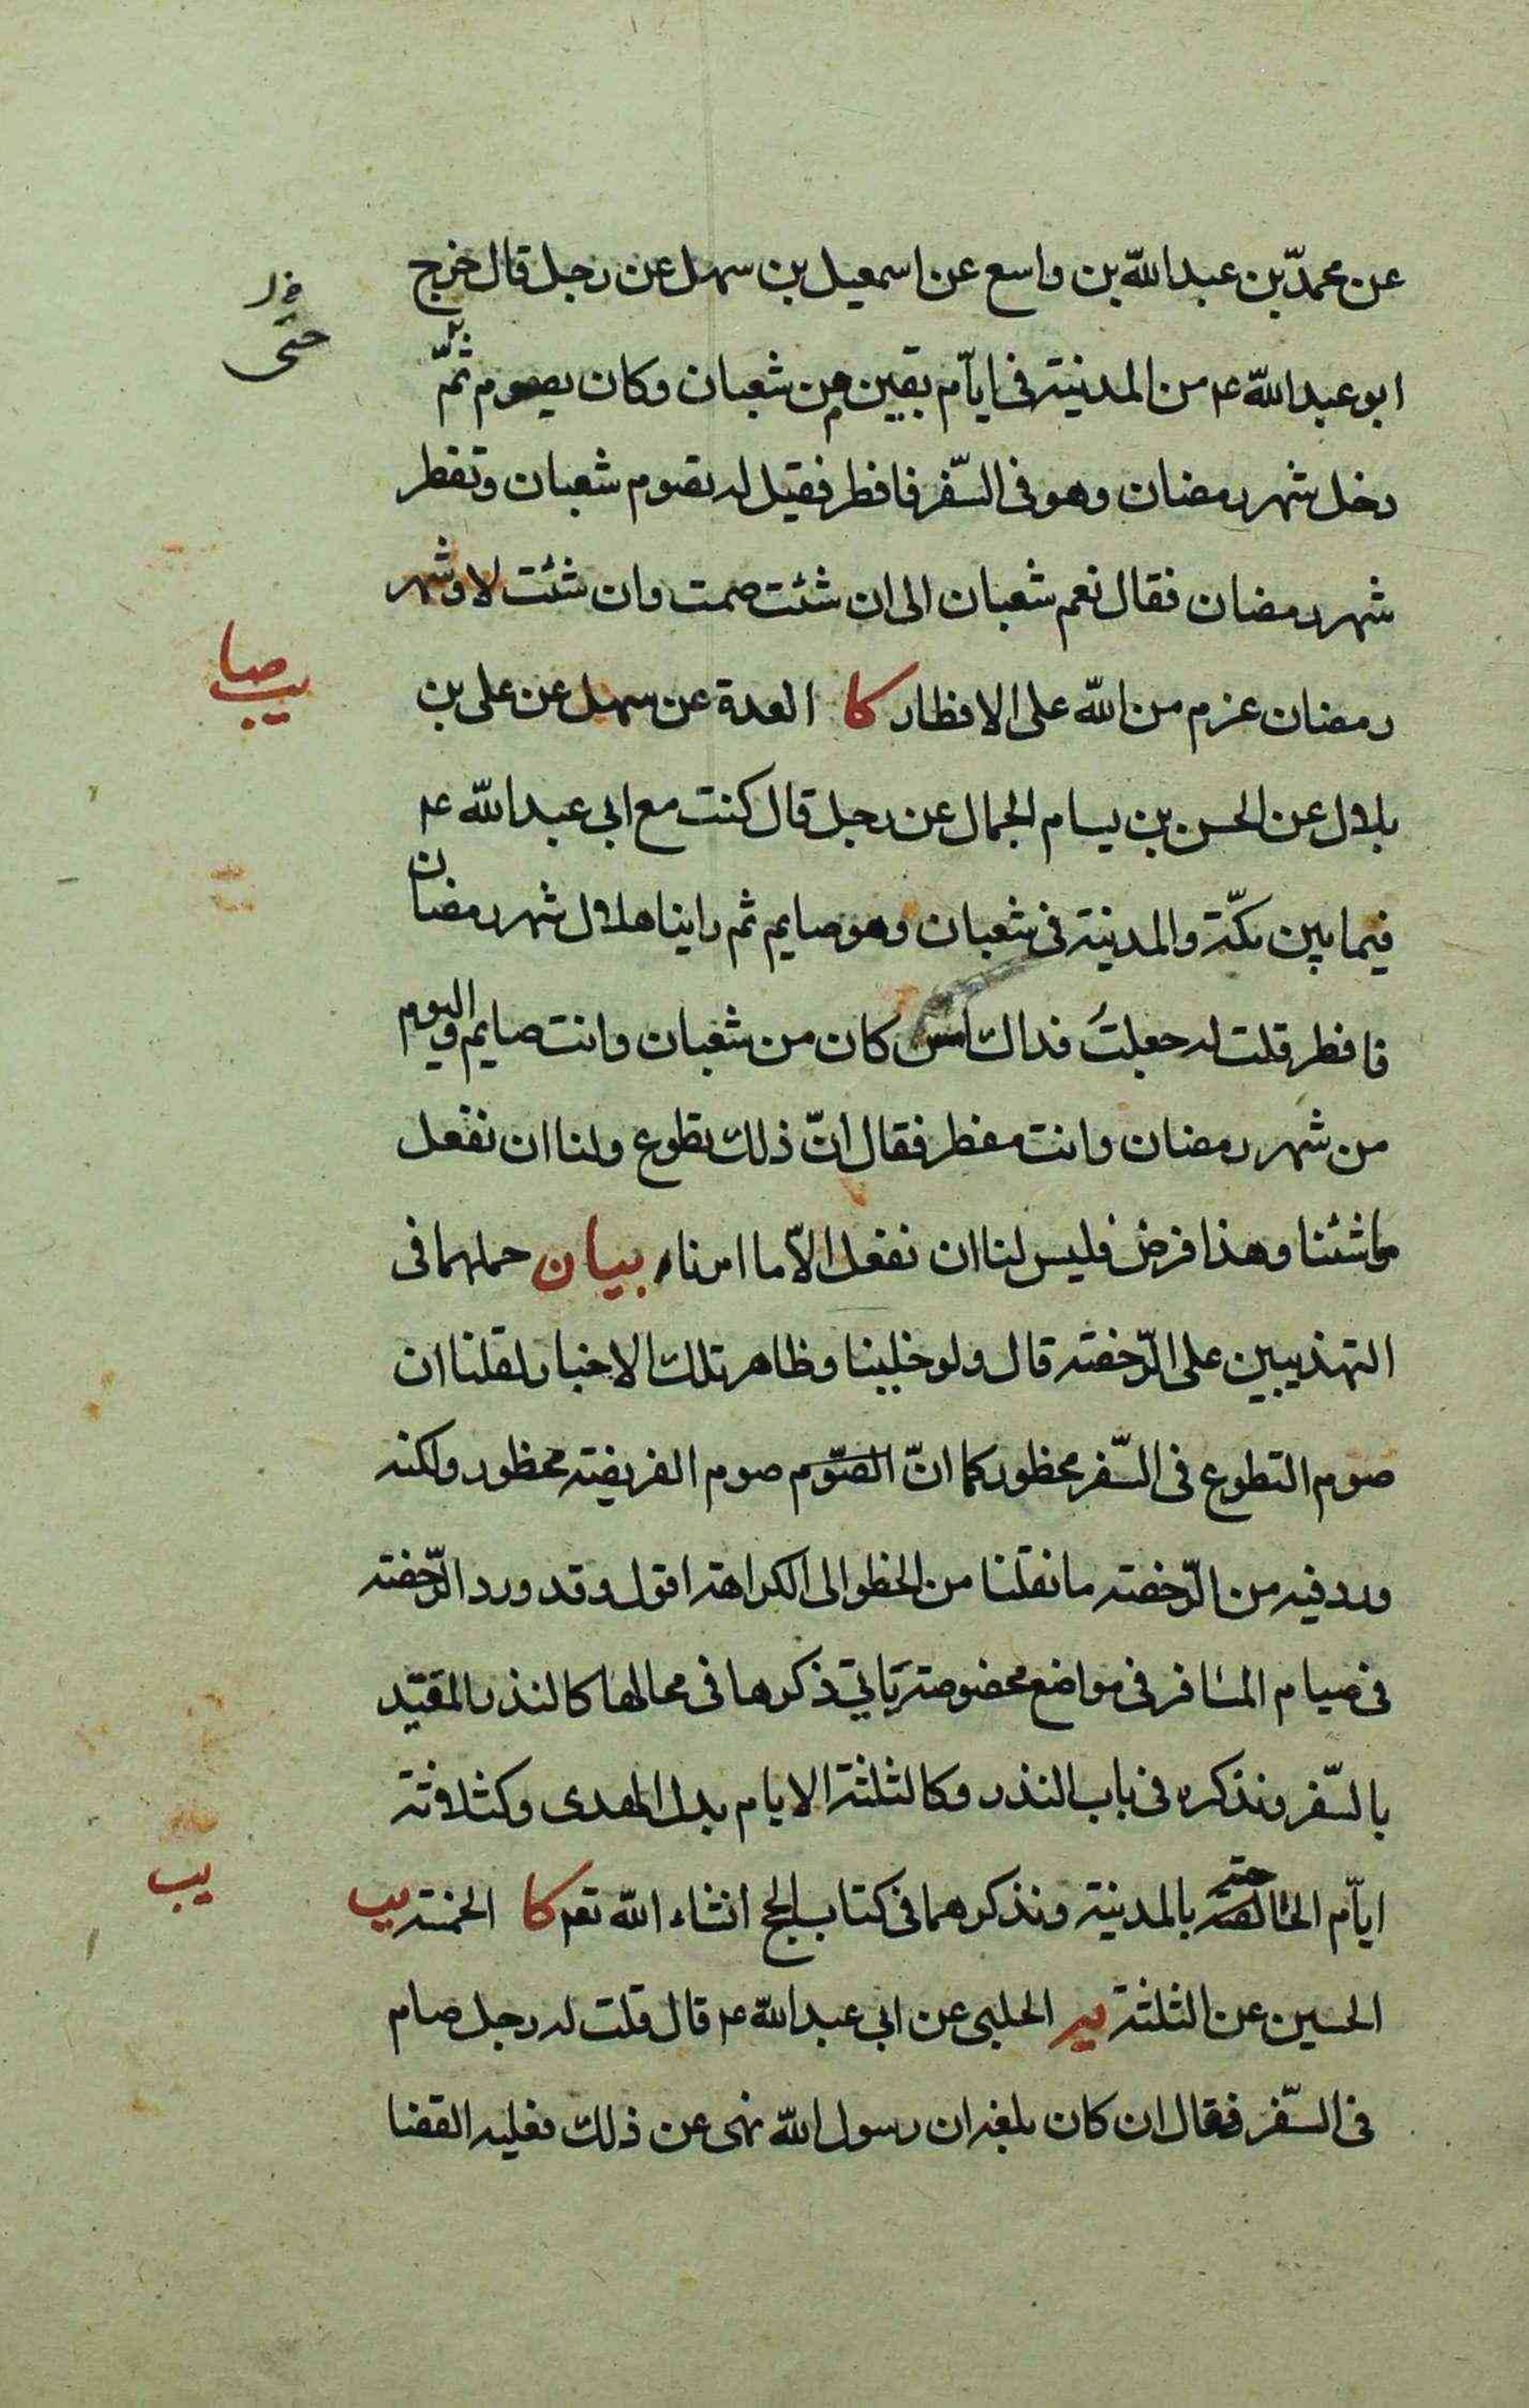 عن محمدّ بن عبد اللّه بن واسع عن اسمعيل بن سهل عن رجل قال خرج
حتى
ابو عبد اللّه ع من المدينة فى ايآم بقين من شعبان وكان يصوم ثمّ
دخل شهر رمضان وهو فى السّفر فافطر فقيل له تصوم شعبان وتفطر
شهر رمضان فقال نعم شعبان الى ان شئت صمت وان شئت لا وشهر
رمضان عزم من اللّه على الافطار كا العدة عن سهل عن على بن
يب صا
بلال عن الحسن بن بسام الجمال عن رجل قال كنت مع ابى عبد اللّه ع
فيما بين مكّة والمدينة فى شعبان وهو صايم ثم راينا هلال شهر رمضان
فافطر قلت له جعلتُ فداك امس كان من شعبان وانت صايم واليوم
من شهر رمضان وانت مفطر فقال انّ ذلك تطوع ولنا ان نفعل
ما شئنا وهذا فرض فليس لنا ان نفعل الاّ ما امرناه بيان حملهما فى
التهذيبين على الرّخصته قال ولو خلينا وظاهر تلك الاخبار لقلنا ان
صوم التطوع فى السّفر محظور كما انّ الصّوم صوم الفريضته محظور ولكنه
ورد فيه من الرّخصته ما نقلنا من الخطوالى الكراهة اقول وقد ورد الرّخصته
فى صيام المسافر فى مواضع مخصوصة يَاتي ذكرها فى محالها كالنذر المقيّد
بالسّفر ونذكره فى باب النذر وكالثلثة الايام بدل الهدى وكثلاثة
ايآم الحتى بالمدينة ونذكرهما فى كتاب الحج انشاء اللّه تعم كا الخمسة يب
يب
الحسين عن الثلثة يه الحلبى عن ابى عبد اللّه ع قال قلت له رجل صام
فى السّفر فقال ان كان بلغه ان رسول اللّه نهى عن ذلك فعليه القضا